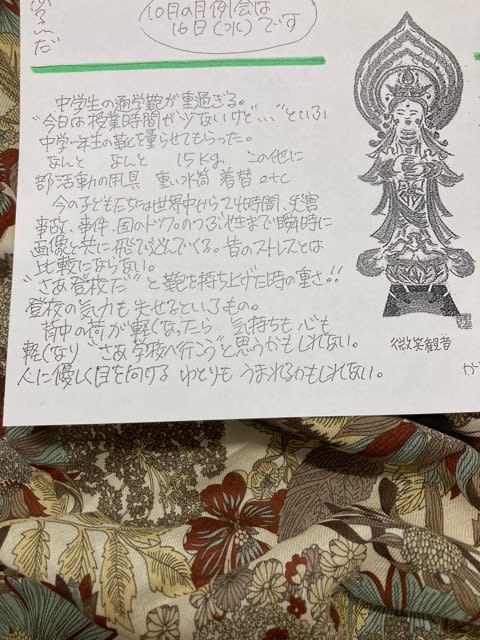 10月の月例会は
16日(水)です
るんだ
中学生の通学鞄が重過ぎる。
"今日は授業時間が少ないけど…"という
中学一年生の鞄を量らせてもらった。
なんと なんと 15kg、この他に
部活動の用具 重い水筒 着替 etc
今の子どもたちには世界中から24時間、災害
事故、事件、国のトップのつぶやきまで瞬時に
画像と共に飛び込んでくる。昔のストレスとは
比較にならない。
"さあ登校だ"と鞄を持ち上げた時の重さ!!
登校の気力も失せるというもの。
背中の荷が軽くなったら 気持ちも 心も
軽くなり"さあ学校へ行こう"と思うかもしれない。
人に優しく目を向ける ゆとりも うまれるかもしれない。
微笑観音